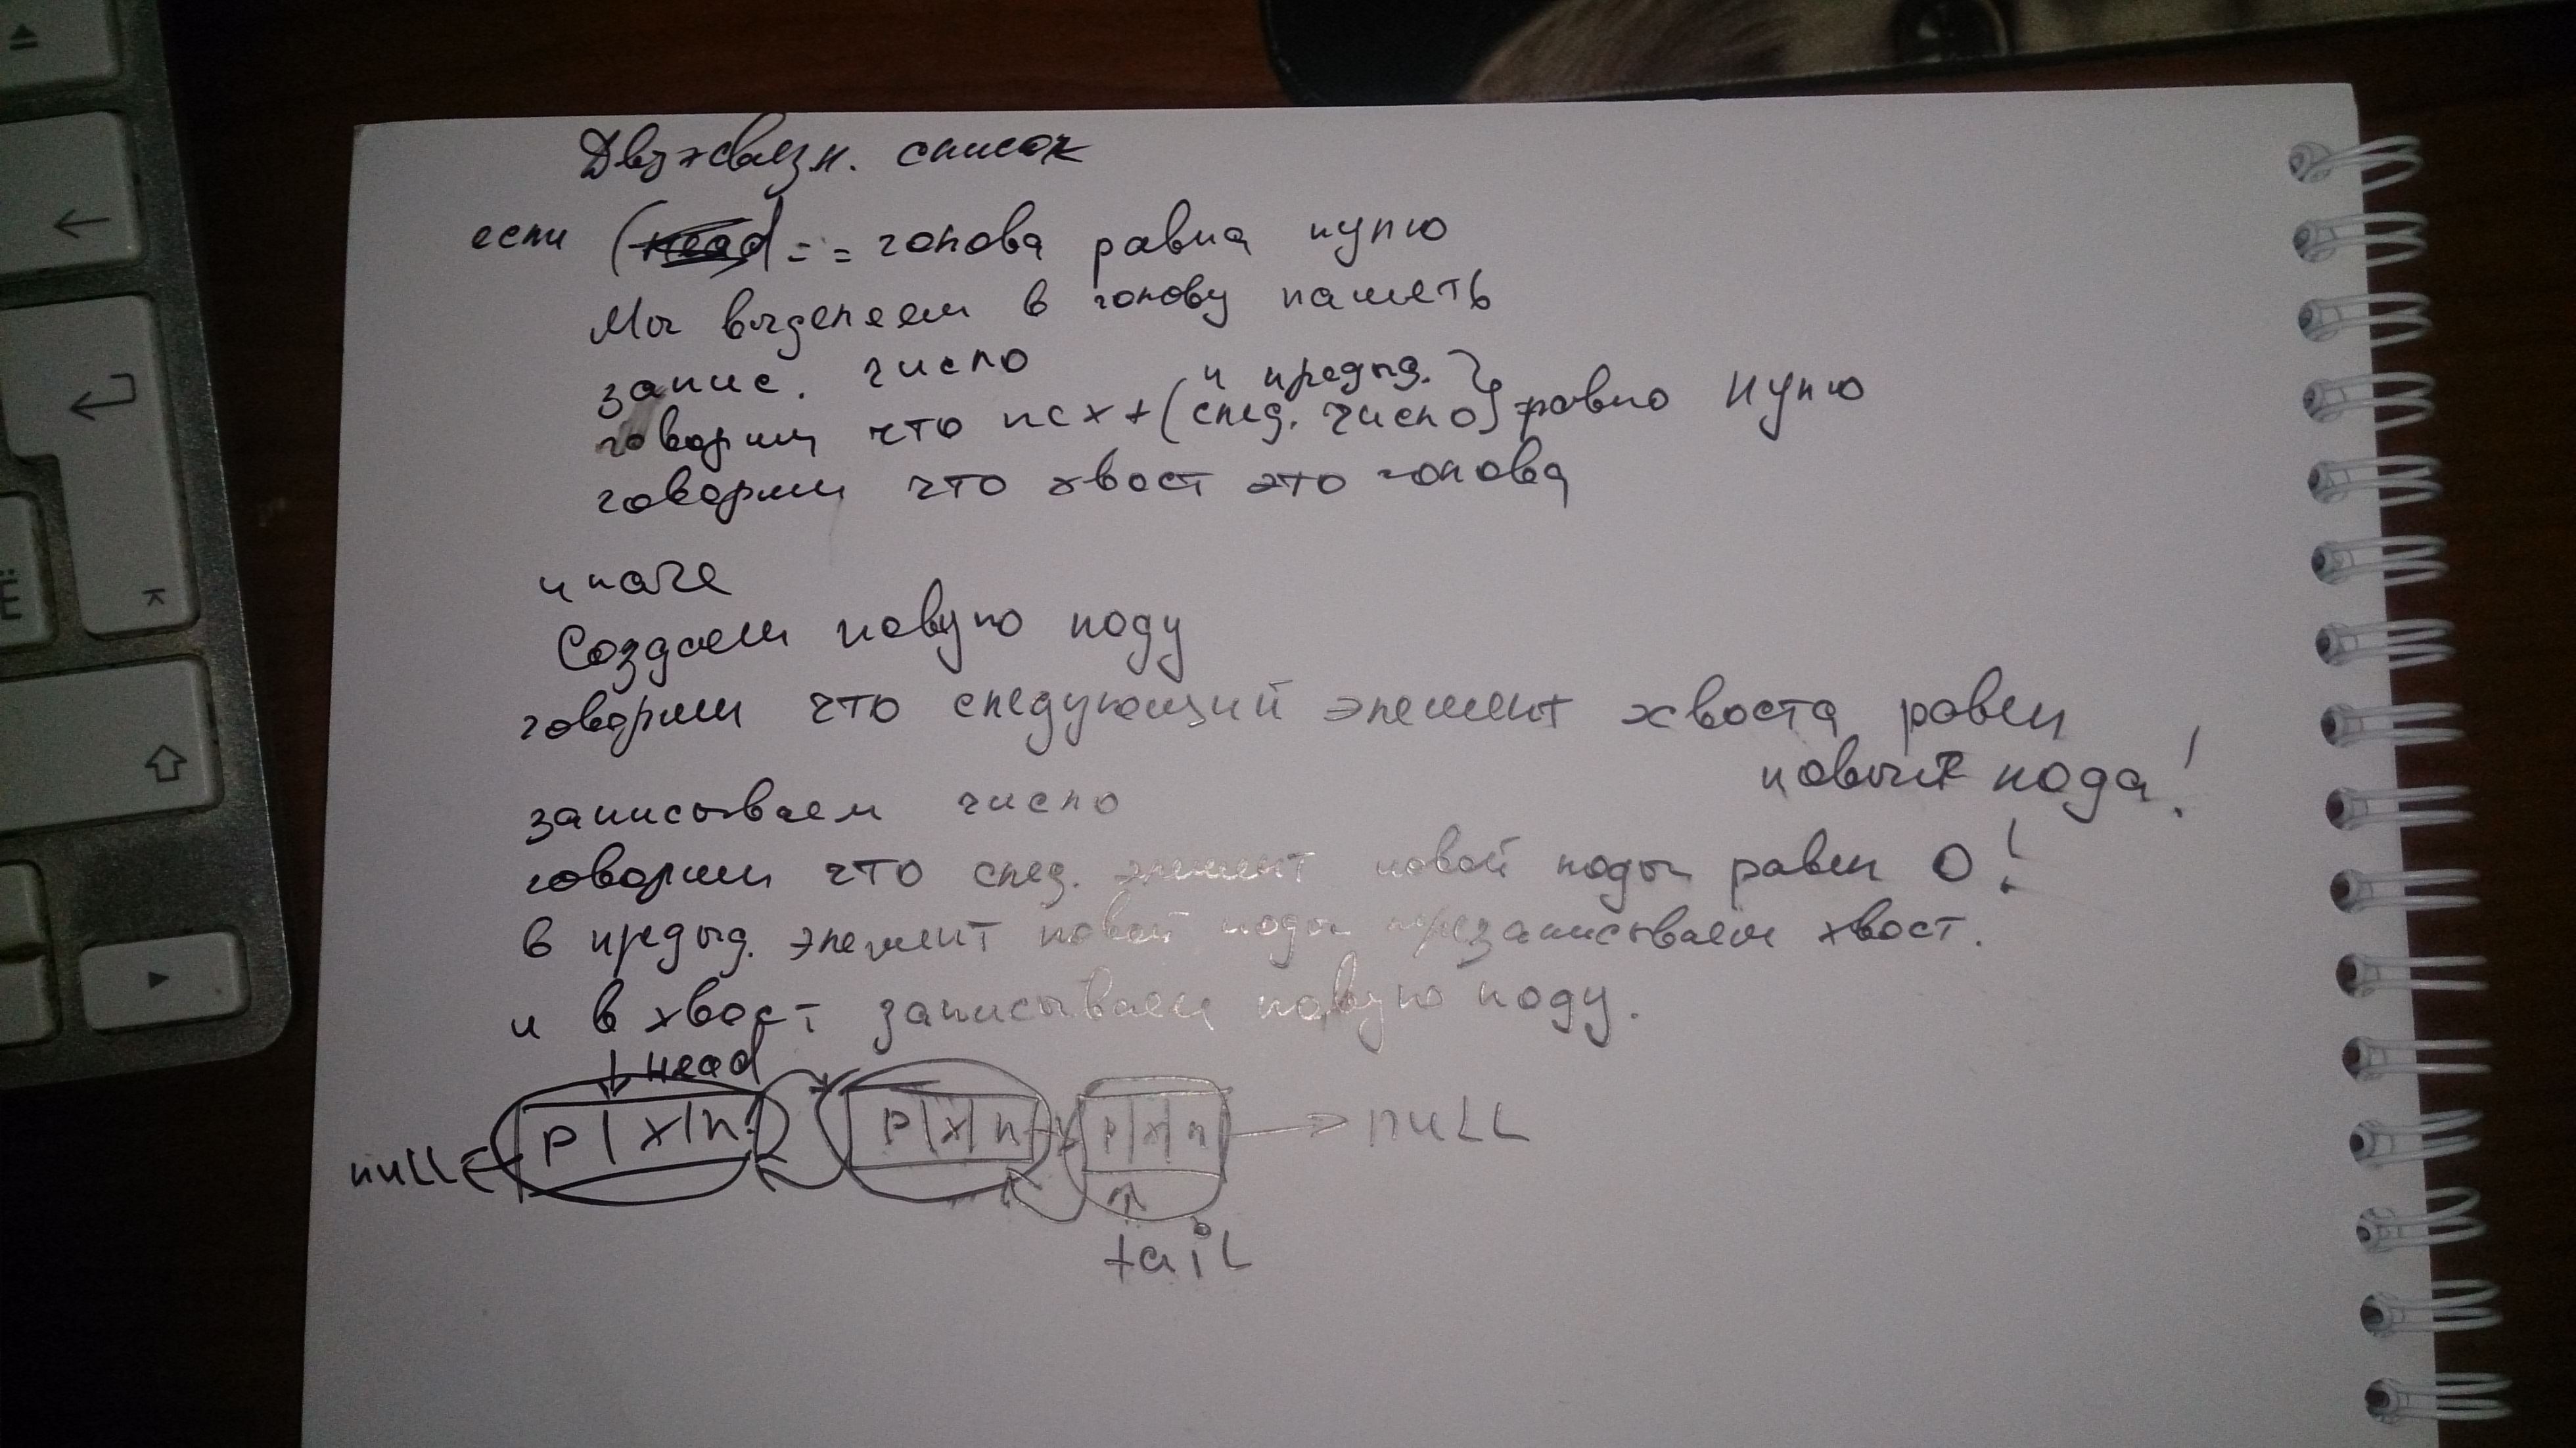 Двухсвязн. список
если (head == голова равна нулю
Мы выделяем в голову память
запис. число
и предыд.
говорим что next (след. число) равно нулю
говорим что хвост это голова
иначе
Создаем новую ноду
говорим что следующий элемент хвоста равен
новый нода!
записываем число
говорим что след. элемент новой ноды равен 0!
в предыд. элемент новой ноды перезаписываем хвост.
и в хвост записываем новую ноду.
head
null P | x | n P | x | n P | x | n null
tail